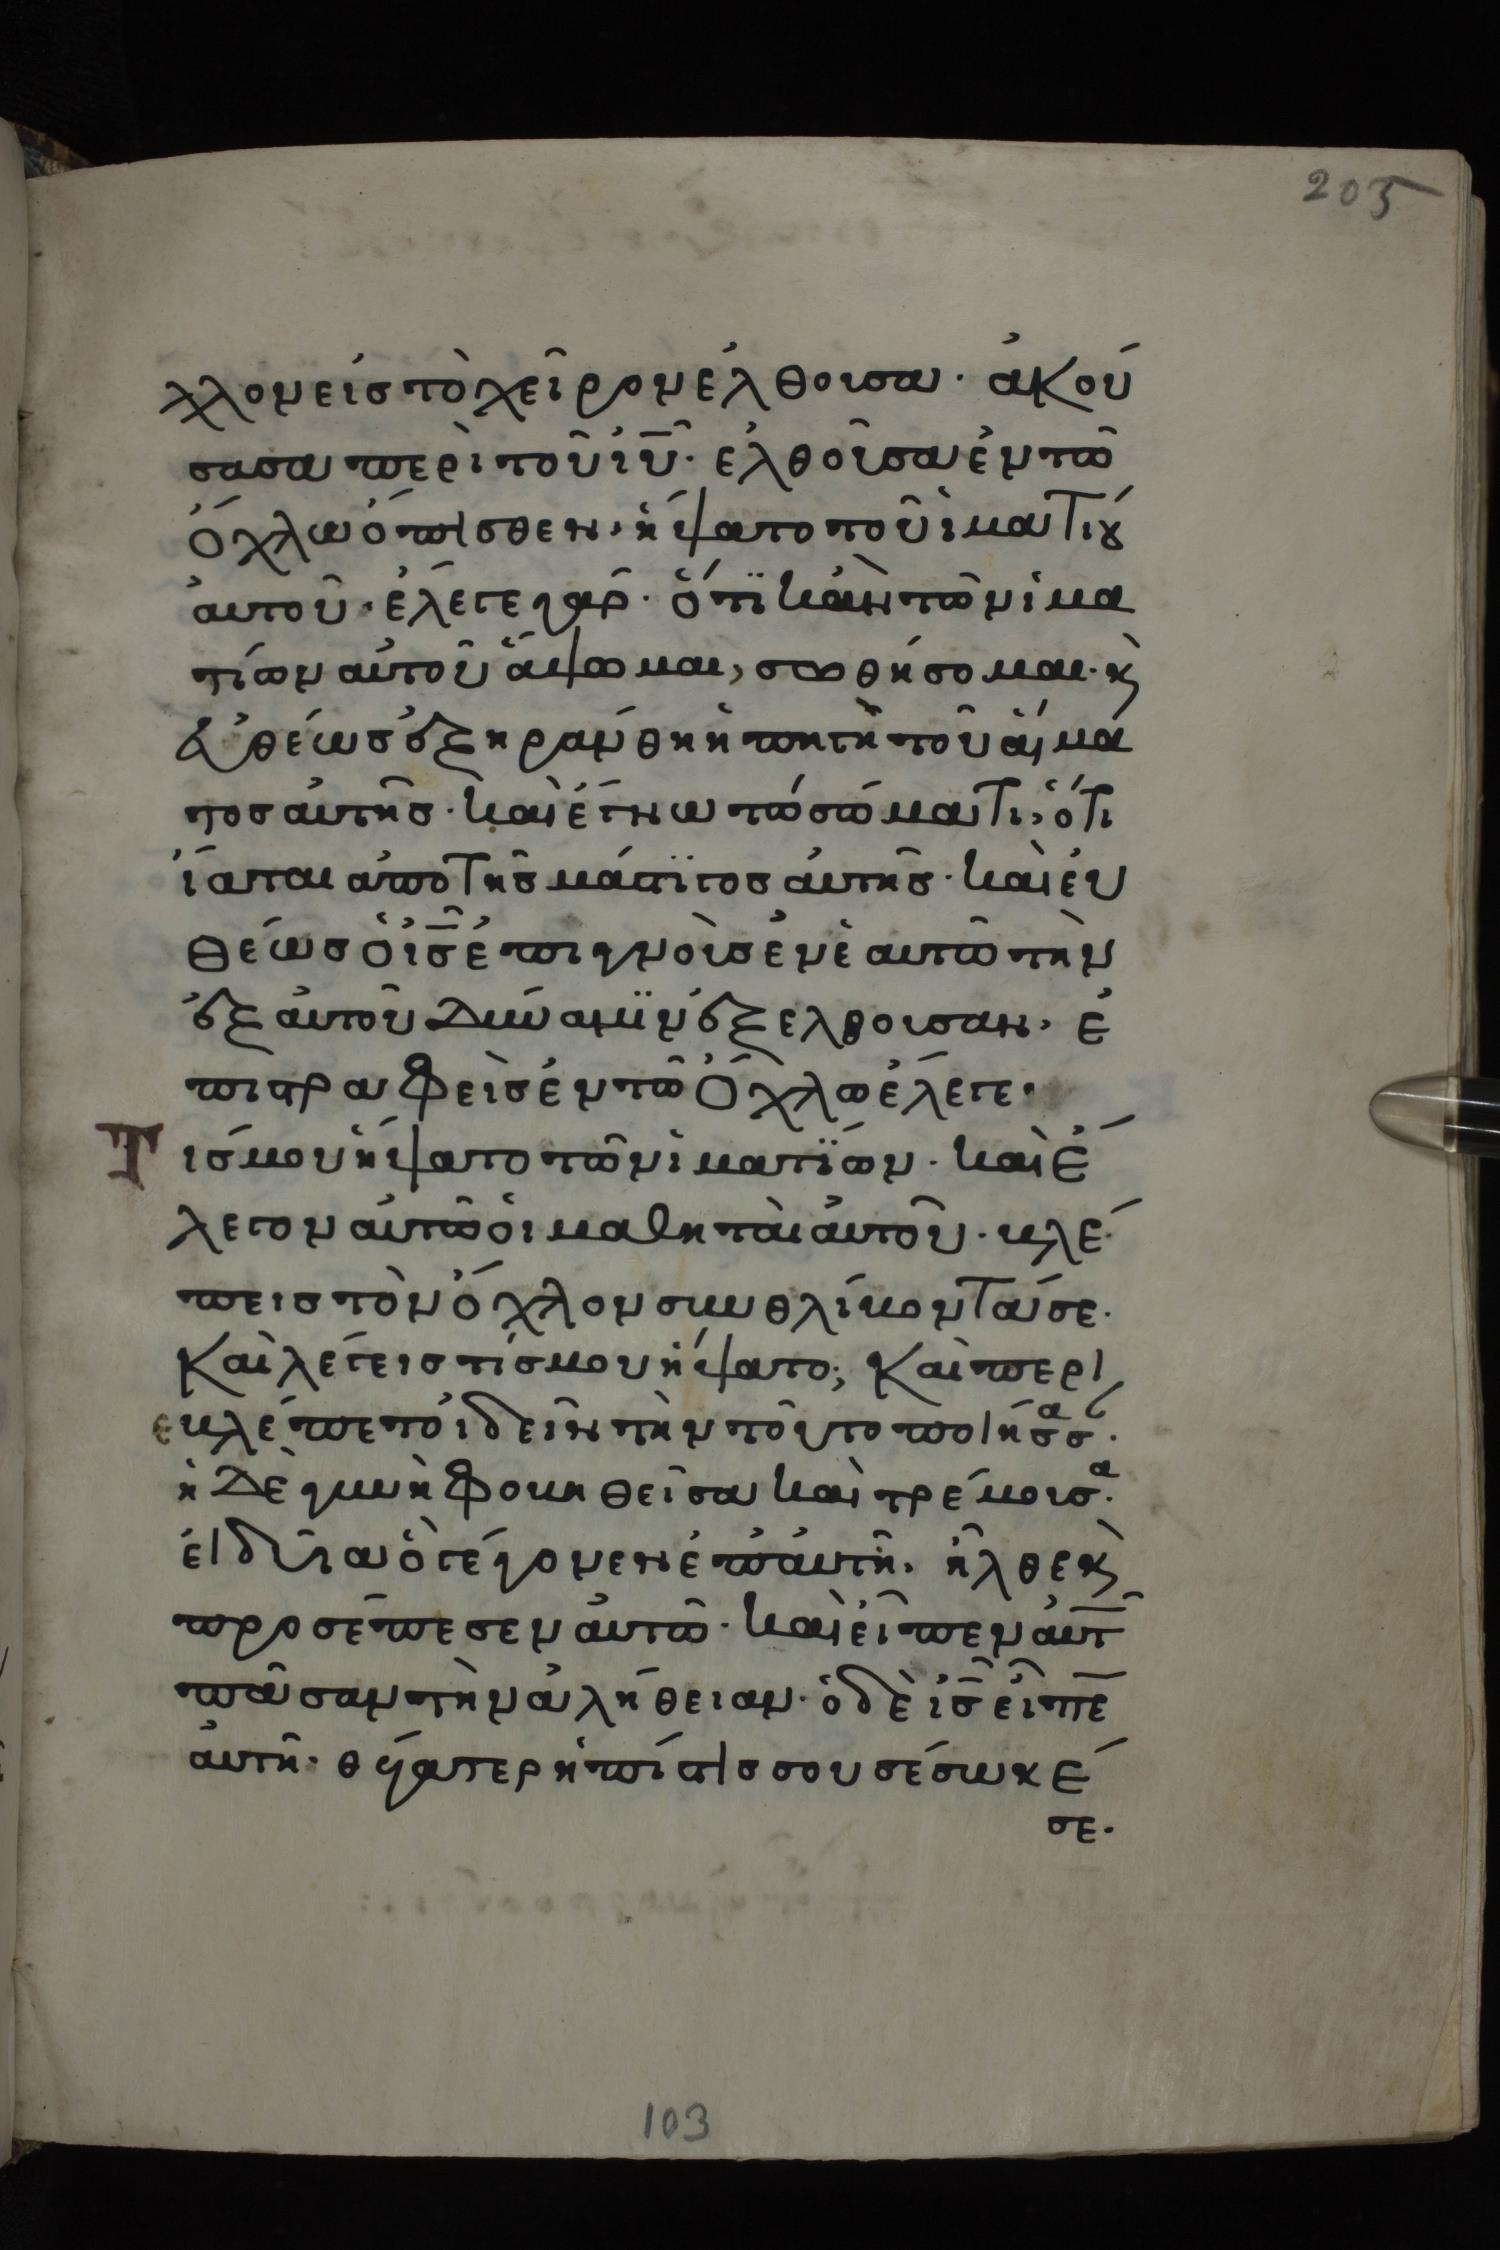 205
λλον εἰς τὸ χεῖρον ἐλθοῦσα· ἀκού
σασα περὶ τοῦ ἰῦ· ἐλθοῦσα ἐν τῶ
ὄχλω ὄπισθεν, ἥψατο τοῦ ἱματίου
ἀυτοῦ· ἔλεγε γὰρ· ὅτι κἂν τῶν ἱμα
τίων αὐτοῦ ἅψωμαι, σωθήσομαι· κ
ευθέως ἐξηράνθη ἡ πηγὴ τοῦ αἵμα
τος αὐτῆς· καὶ ἔγνω τῶ σώματι, ὅτι
ἴαται απὸ τῆς μάστιγος ἀυτῆς· καὶ ἐυ
θέως ὁ ἰς ἐπιγνοὺς ἐν ἑαυτῶ τὴν
ἐξ ἀυτοῦ δύναμϊν ἐξελθοῦσαν, ἐ
πιστραφεὶς ἐν τῶ ὄχλω ἔλεγε·
Τίς μου ἥψατο τῶν ἱματίων· καὶ ἔ
λεγον αὐτῶ ὁι μαθηταὶ ἀυτοῦ· βλέ
πεις τὸν ὄχλον συνθλίβοντά σε·
Καὶ λέγεις τίς μου ἥψατο; Καὶ περι
εβλέπετο ἰδεῖν τὴν τοῦτο ποιήσασ·
ἡ δὲ γυνὴ φοβηθεῖσα καὶ τρέμουσα·
εἰδυῖα ὃ γέγονεν ἐπ ἀυτῆ, ἦλθε κ
προσέπεσεν ἀυτῶ· καὶ εἶπεν ἀυτ
πᾶσαν τὴν ἀλήθειαν· ὁ δὲ ἰς εἶπε
ἀυτῆ· θύγατερ ἡ πίστις σου σέσωκέ
σε·
103